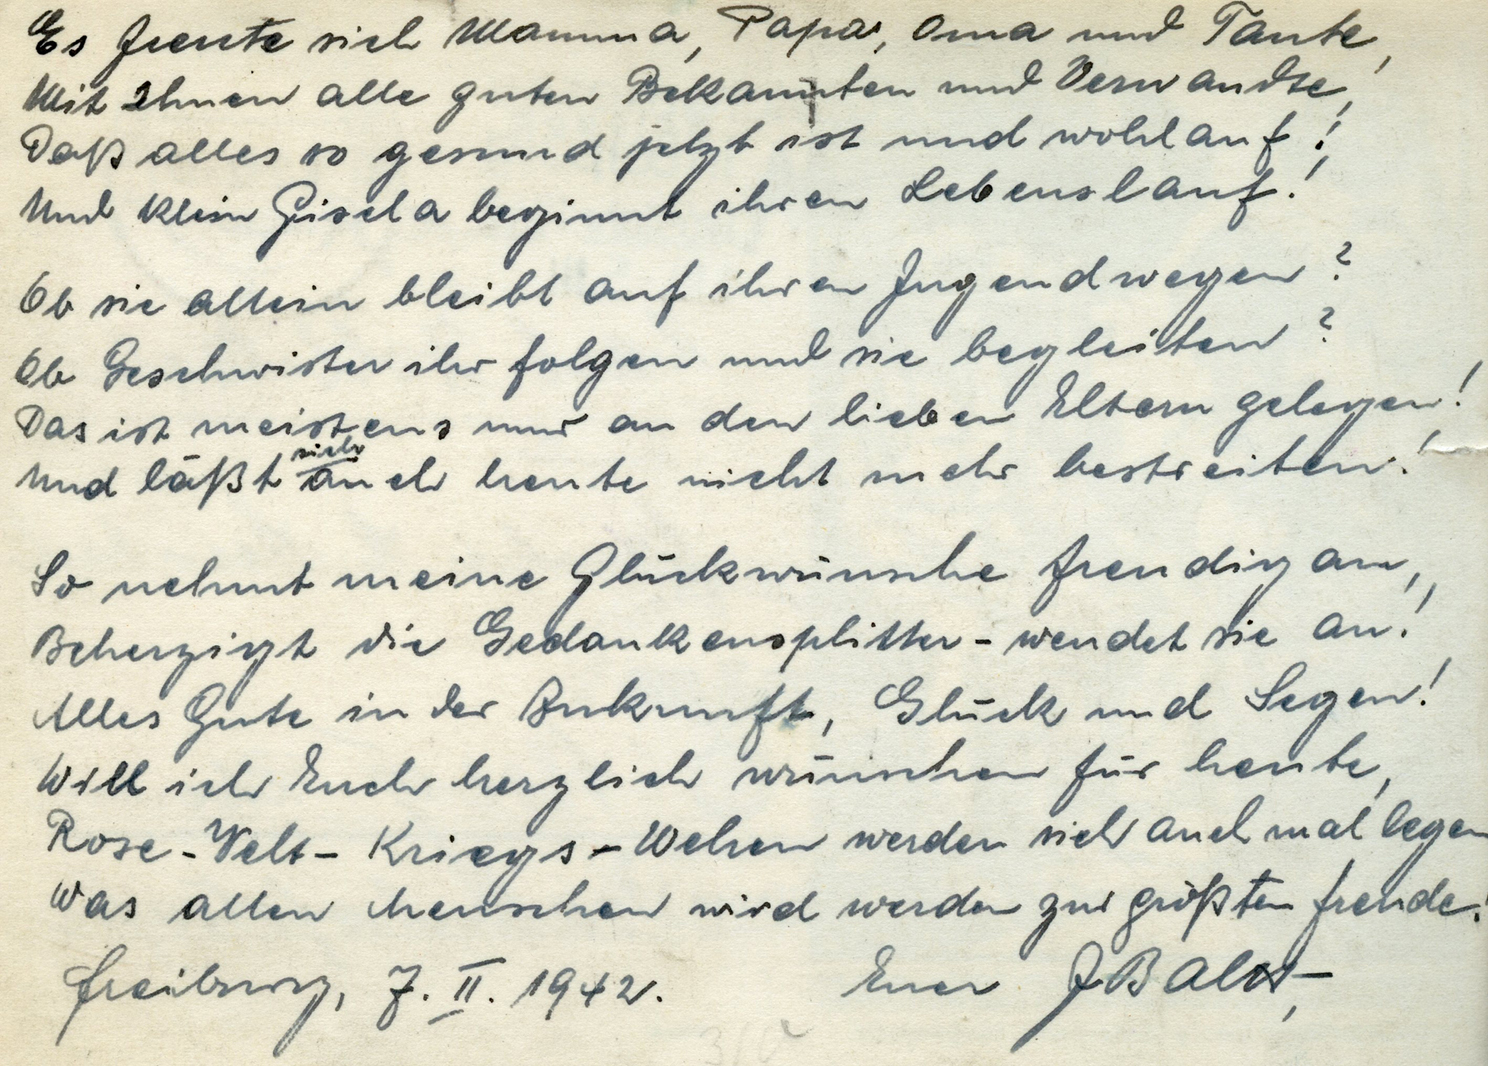 Es freute sich Mamma, Papa, Oma und Tante,
Mit Ihnen alle guten Bekannten und Verwandte,
Daß alles so gesund jetzt ist und wohlauf!
Und klein Gisela beginnt ihren Lebenslauf!
Ob sie allein bleibt auf ihren Jugendwegen?
Ob Geschwister ihr folgen und sie begleiten?
Das ist meistens nur an den lieben Eltern gelegen!
Und läßt sich auch heute nicht mehr bestreiten!
So nehmt meine Glückwünsche freudig an,
Beherzigt die Gedankensplitter - wendet sie an!
Alles Gute in der Zukunft, Glück und Segen!
Will ich Euch herzlich wünschen für heute,
Rose-Velt-Kriegs-Wehen werden sich auch mal legen
Was allen Menschen wird werden zur größten Freude!
Freiburg, 7. II. 1942.
Euer J